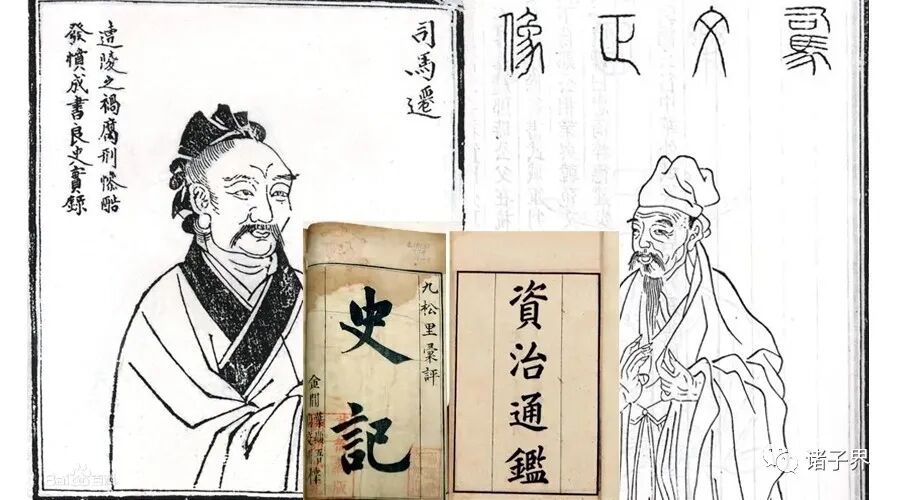 司馬遷
遭陵之禍腐刑慘酷
發憤成書良史實錄
司馬
文
正
像
九松里彙評
史記
金閶
資治通鑑
诸子界